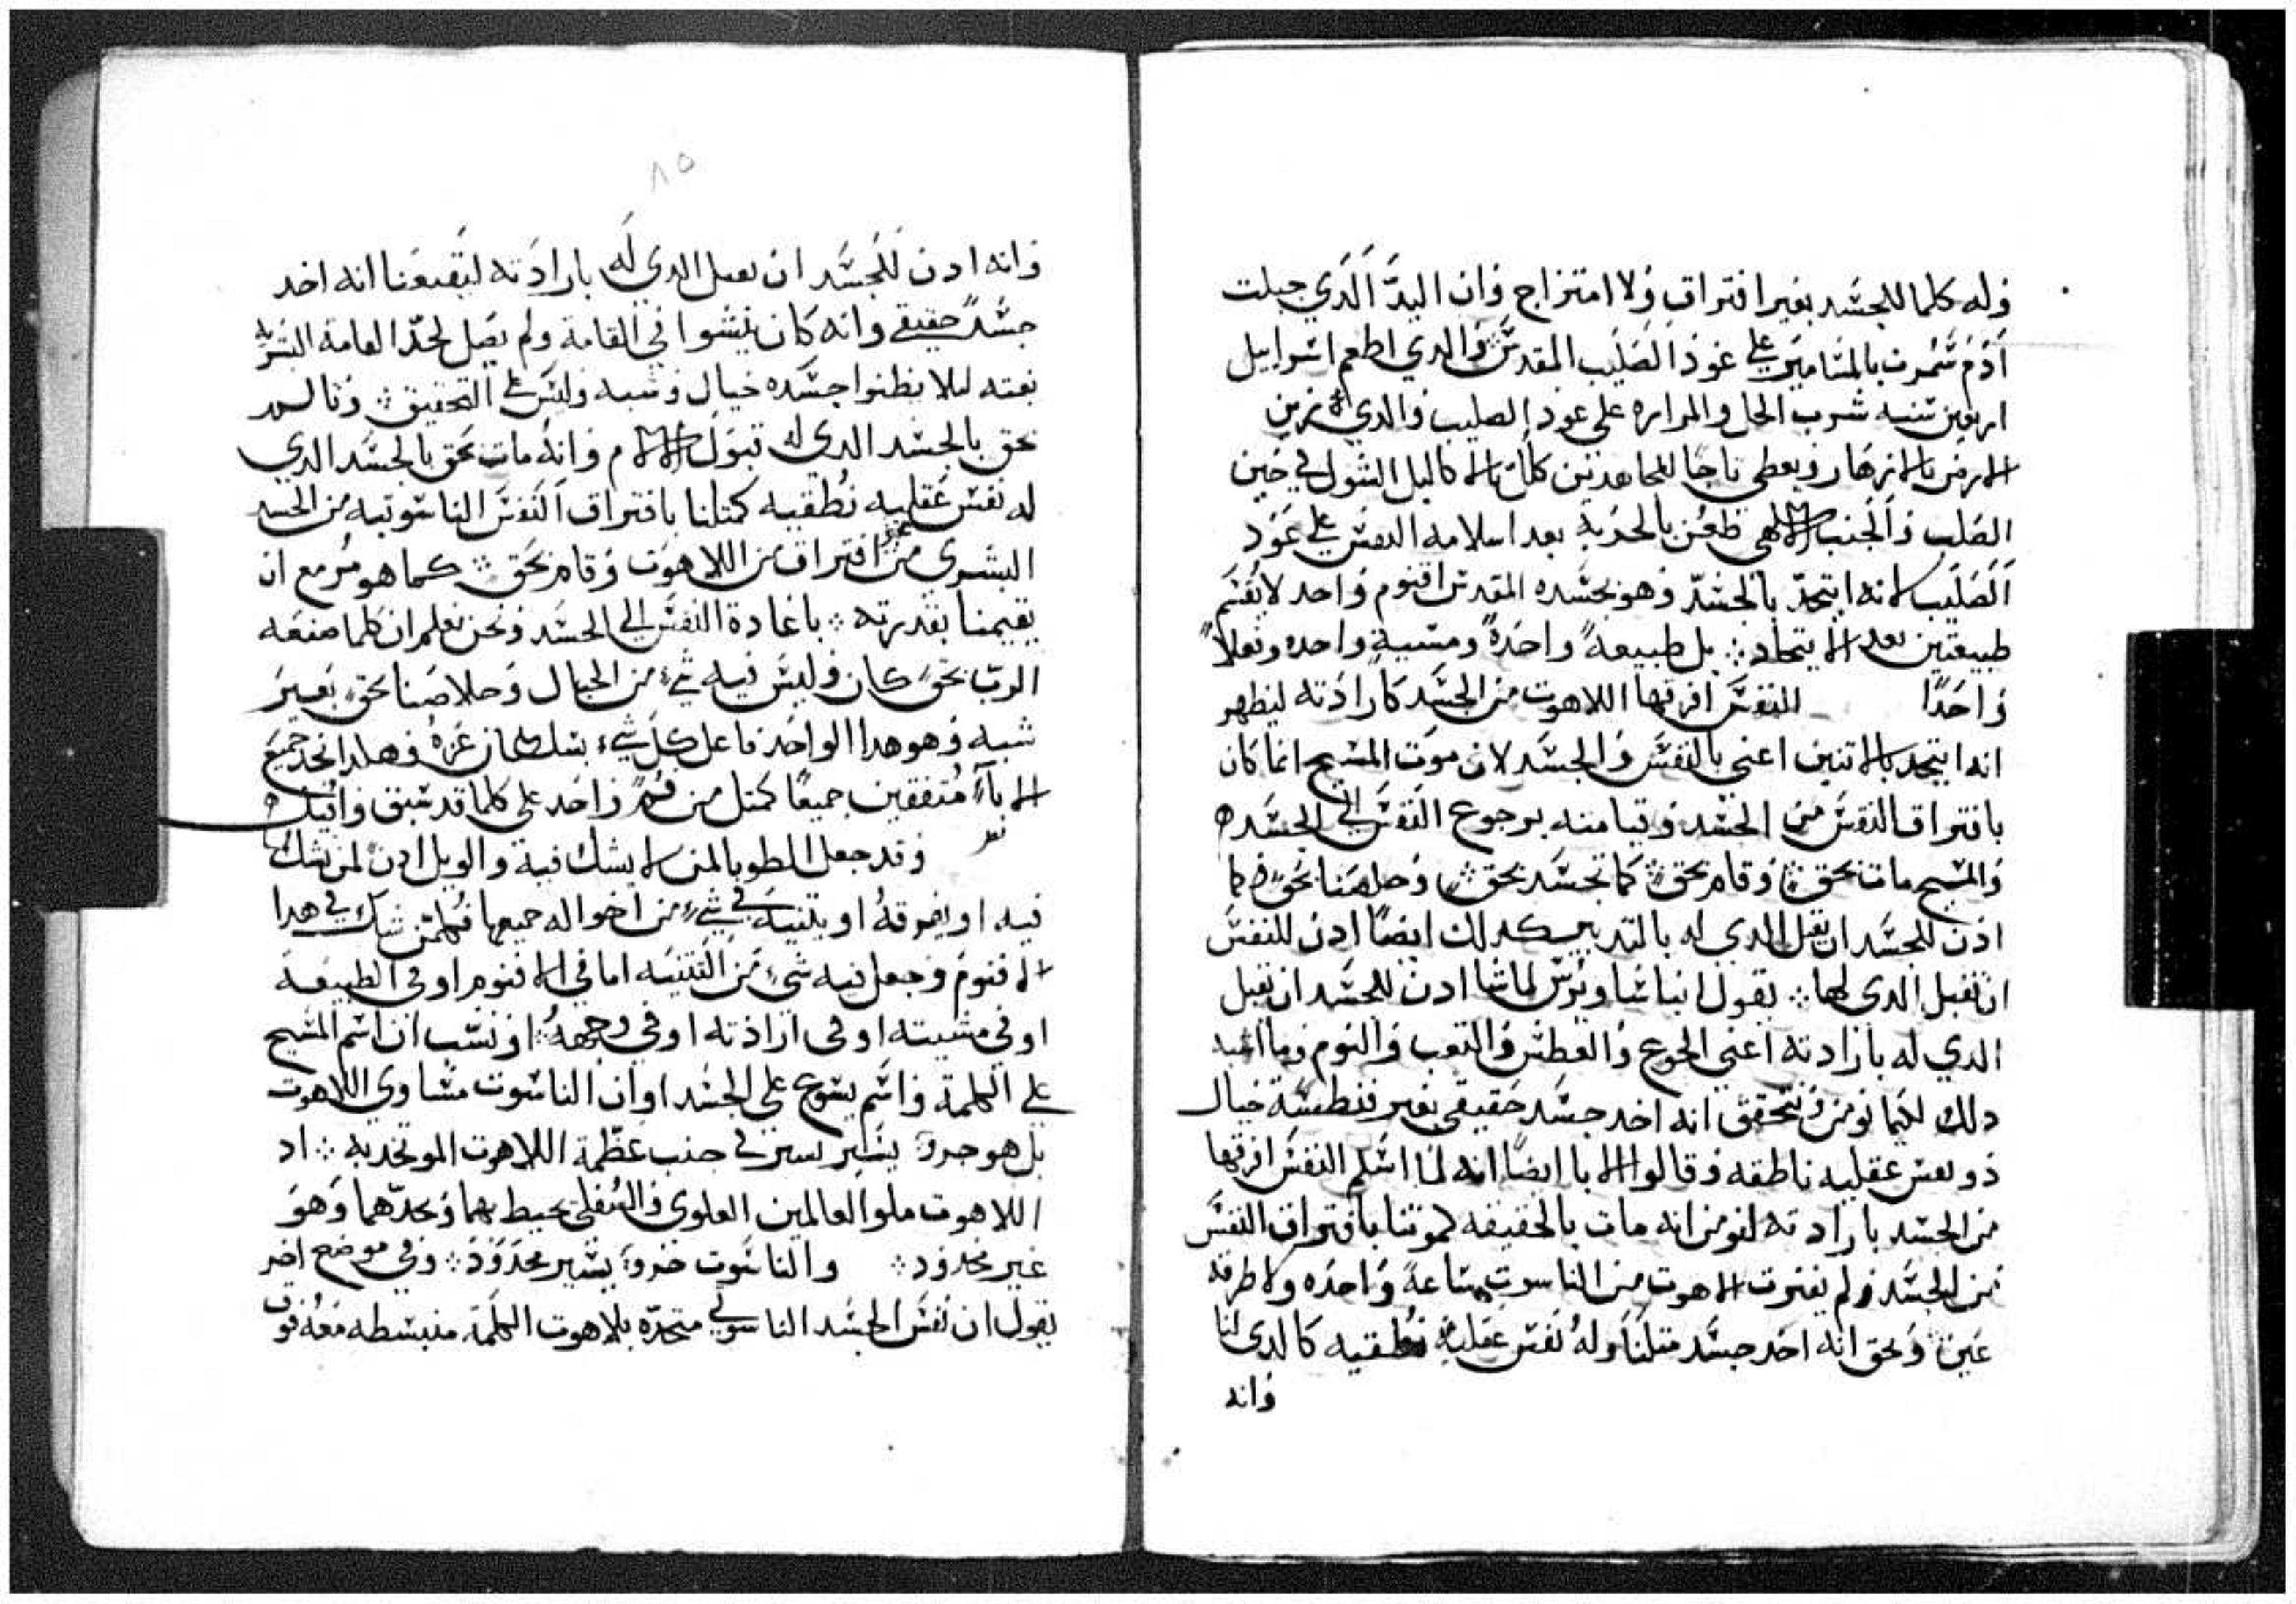 وله كلما للجسد بغير افتراق ولا امتزاج وان اليد الدي جبلت
ادم سمرت بالمسامير على عود الصليب المقدس والدي اطعم اسراييل
اربعين سنه شرب الخل والمراره على عود الصليب والدي زين
الارض بالازهار ويعطي تاجا للمجاهدين كلل باكاليل الشوك في حين
الصلب والجنب الالاهي طعن بالحربة بعد اسلامه النفس على عود
الصليب لانه اتحد بالجسد وهو بجسده المقدس اقنوم واحد لا يقسم
طبيعتين بعد الاتحاد بل طبيعة واحدة ومشية واحده وفعلاً
واحدًا النفس افرقها اللاهوت من الجسد كارادته ليظهر
انه اتحد بالاتنين اعني بالنفس والجسد لان موت المسيح انما كان
بافتراق النفس من الجسد وقيامته برجوع النفس الى الجسد
والمسيح مات بحق وقام بحق كما تجسد بحق وخلصنا بحق فكما
ادن للجسد ان يقبل الدي له بالتدبير كدلك ايضًا ادن للنفس
ان تقبل الدي لها يقول انبا ساويرس لما شا ادن للجسد ان يقبل
الدي له بارادته اعني الجوع والعطش والتعب والنوم وما اشبه
دلك لكيما نومن ونتحقق انه اخد جسد حقيقي بغير فنطسة خيال
دو نفس عقليه ناطقه وقالوا الابا ايضًا انه لما اسلم النفس افرقها
من الجسد بارادته لنومن انه مات بالحقيقه كموتنا بافتراق النفس
من الجسد ولم يفترق اللاهوت من الناسوت ساعة واحده ولا طرفة
عين وبحق انه اخد جسد متلنا وله نفس عقلية نطقيه كالدي لنا
وانه
٨٥
وانه ادن للجسد ان يقبل الدي له بارادته ليقنعنا انه اخد
جسدً حقيقي وانه كان ينشوا في القامة ولم يصل لحد القامة البشريه
بغته ليلا يظنوا جسده خيال وشبه وليس على التحقيق وتالم
بحق بالجسد الدي له قبول الالام وانه مات بحق بالجسد الدي
له نفس عقليه نطقيه كمتلنا بافتراق النفس الناسوتيه من الجسد
البشري من غير افتراق من اللاهوت وقام بحق كما هو مزمع ان
يقيمنا بقدرته باعادة النفس الى الجسد ونحن نعلم ان كلما صنعه
الرب بحق كان وليس فيه شي من الخيال وخلاصنا بحق بغير
شبه وهو هدا الواحد فاعل كل شيء بسلطان عزه فهكدا نجد جميع
الابآء متفقين جميعًا كمتل من فم واحد على كلما قد سبق واتيتك
وقد جعل الطوبا لمن لا يشك فيه والويل ادن لمن يشك
فيه او يفرقه او يتنيه في شيء من احواله جميعها فكلمن شك في هدا
الاقنوم وجعل فيه شي من التتنيه اما في الاقنوم او في الطبيعة
او في مشيته او في ارادته او في وجهه او نسب ان اسم المسيح
على الكلمة واسم يسوع على الجسد او ان الناسوت مساوي اللاهوت
بل هو جزو يسير يسير في جنب عظمة اللاهوت الموتحد به اد
اللاهوت ملو العالمين العلوي والسفلي يحيط بهما ويحدهما وهو
غير محدود والناسوت جزو يسير محدود وفي موضع اخر
يقول ان نفس الجسد الناسوتي متحده بلاهوت الكلمة منبسطه معه فوق